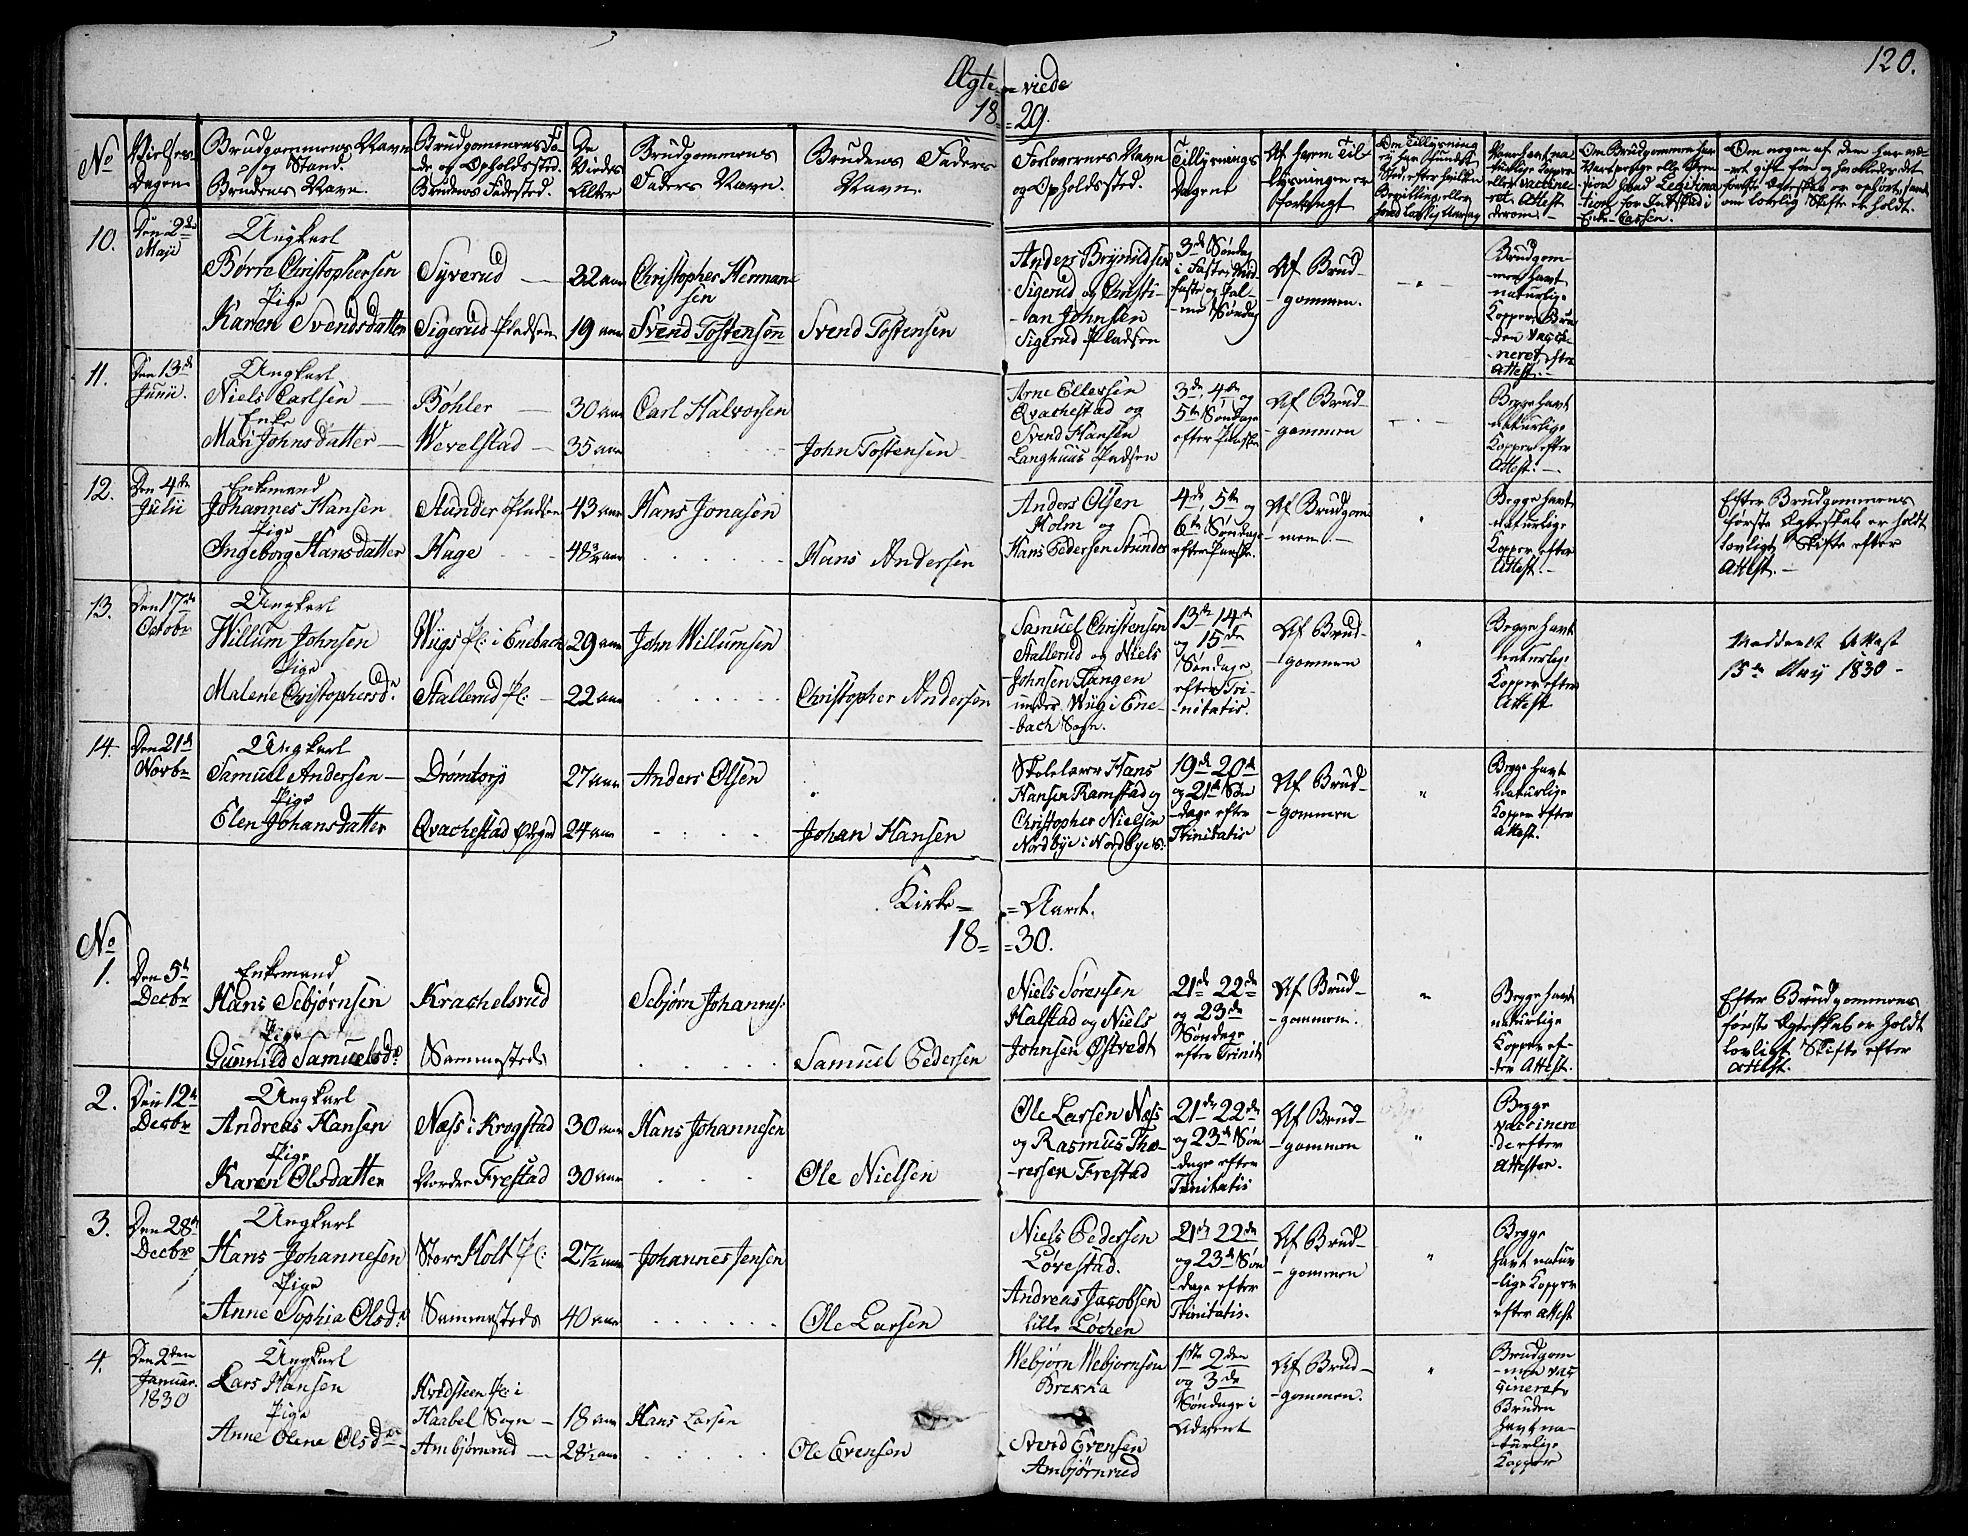 120.
Ægte= =viede
18= =29.
No
Vielses Dagen
Brudgommens Navn og Stand. Brudens Navn.
Brudgommenes Føde og Opholdssted. Brudens Fødested.
De Viedes Alder
Brudgommens Faders Navn.
Brudens Faders Navn.
Forlovernes Navn og Opholdssted.
Tillysnings Dagene
Af hvem Tillysningen er forlangt
10.
Den 2de Maji
Ungkarl
Børre Christophersen
Pige
Karen Svendsdatter
Syverud —
Sigerud Pladsen
32 aar
19 aar
Christopher Hermansen
Svend Tostensen
Svend Tostensen
Anders Brynildsen
Sigerud og Christi-
-an Johnsen
Sigerud Pladsen
3de Søndag
i Faste, Mid
faste og Pal-
me Søndag
Af Brud-
-gommen.
— " —
Brudgom-
men havt
naturlige
Kopper, Bru-
den vacci-
neret efter
Attest.—
11.
Den 13de Junii.
Ungkarl
Niels Carlsen —
Enke
Mari Johnsdatter —
Bøhler —
Wevelstad —
30 aar
35 aar
Carl Halvorsen
John Tostensen
Arne Ellersen
Qvachestad og
Svend Hansen
Langhuus Pladsen
3de, 4de og
5te Søndage
efter Paaske
Af Brud-
-gommen
Begge havt
naturlige
Kopper efter
Attest.—
12.
Den 4de Julii
Enkemand
Johannes Hansen
Pige
Ingeborg Hansdatter
Stunder Pladsen
Hage
43 aar
48 3/4 aar
Hans Jonasen
Hans Andersen
Anders Olsen
Holm og
Hans Pedersen Stunder
4de, 5te og
6te Søndage
efter Paaske.
Af Brudgom-
men.—
"
Begge havt
naturlige
Kopper efter
Attest.—
Efter Brudgommens
første Ægteskab er holdt
lovligt Skifte efter
Attest.—
13.
Den 17de Octobr
Ungkarl
Willum Johnsen
Pige
Malene Christophersdr
Wiigs Pl: i Enebach
Stallerud Pl: —
29 aar
22 aar
John Willumsen
Christopher Andersen
Samuel Christensen
Stallerud og Niels
Johnsen Tangen
under Wiig i Ene-
-bach Sogn.
13de 14de
og 15de
Søndage
efter Tri-
nitatis.
Af Brud-
-gommen
"
Begge havt
naturlige
Kopper efter
Attest
Meddeelt Attest
15de May 1830 -
14.
Den 21de Novbr
Ungkarl
Samuel Andersen —
Pige
Elen Johansdatter
Drømtorp
Qvachestad
27 aar
24 aar
Anders Olsen
Johan Hansen
Skolelærer Hans
Hansen Ramstad og
Christopher Nielsen
Nordbye i Nordbye S:
19de 20de
og 21de Søn
dage efter
Trinitatis
Af Brud-
-gommen
"
Begge havt
naturlige
Kopper efter
Attest.
Kirke= =Aaret.
18= =30.
No
1.
Den 5te Decbr
Enkemand
Hans Sebjørnsen
Pige
Gunnild Samuelsdr.
Krachelsrud
Sammesteds
Sebjørn Johannes:
Samuel Pedersen
Niels Sørensen
Halstad og Niels
Johnsen Østvedt
21de 22de
og 23de
Søndage
efter Trinit
Af Brud-
-gommen.
"
Begge havt
naturlige
Kopper ef-
ter Attest.
Efter Brudgommens
første Ægteskab er holdt
lovligt Skifte efter
Attest.
2.
Den 12te Decbr
Ungkarl
Andreas Hansen
Pige
Karen Olsdatter
Næss i Krogstad
Nordre Frestad
30 aar
30 aar
Hans Johannesen
Ole Nielsen
Ole Larsen Næss
og Rasmus Tho-
-resen Frestad
21de 22de
og 23de Søn
-dage efter
Trinitatis
Af Brud-
-gommen
"
Begge
vaccinere
-de efter
Attester.
3.
Den 28de Decbr
Ungkarl
Hans Johannesen
Pige
Anne Sophia Olsdr.
Store Holt Pl:
Sammesteds
27 1/2 aar
40 aar
Johannes Jensen
Ole Larsen
Niels Pedersen
Løvestad.
Andreas Jacobsen
lille Løchen
21de 22de
og 23de Søn
-dage efter
Trinitatis.
Af Brud-
-gommen
"
Begge
havt natur
-lige Kopper
efter Attest
4.
Den 2den Januar. 1830
Ungkarl
Lars Hansen
Pige
Anne Olene Olsdr.
Hvidsteen Pl: i
Haabel Sogn —
Ambjørnrud —
18 aar
28 1/2 aar
Hans Larsen
Ole Evensen
Webjørn Webjørnsen
Brekka
Svend Evensen
Ambjørnrud
1ste 2den
og 3de
Søndage i
Advent
Af Brud-
-gommen.
"
Brudgom
-men vac
cineret,
Bruden
havt na-
turlige
Kopper